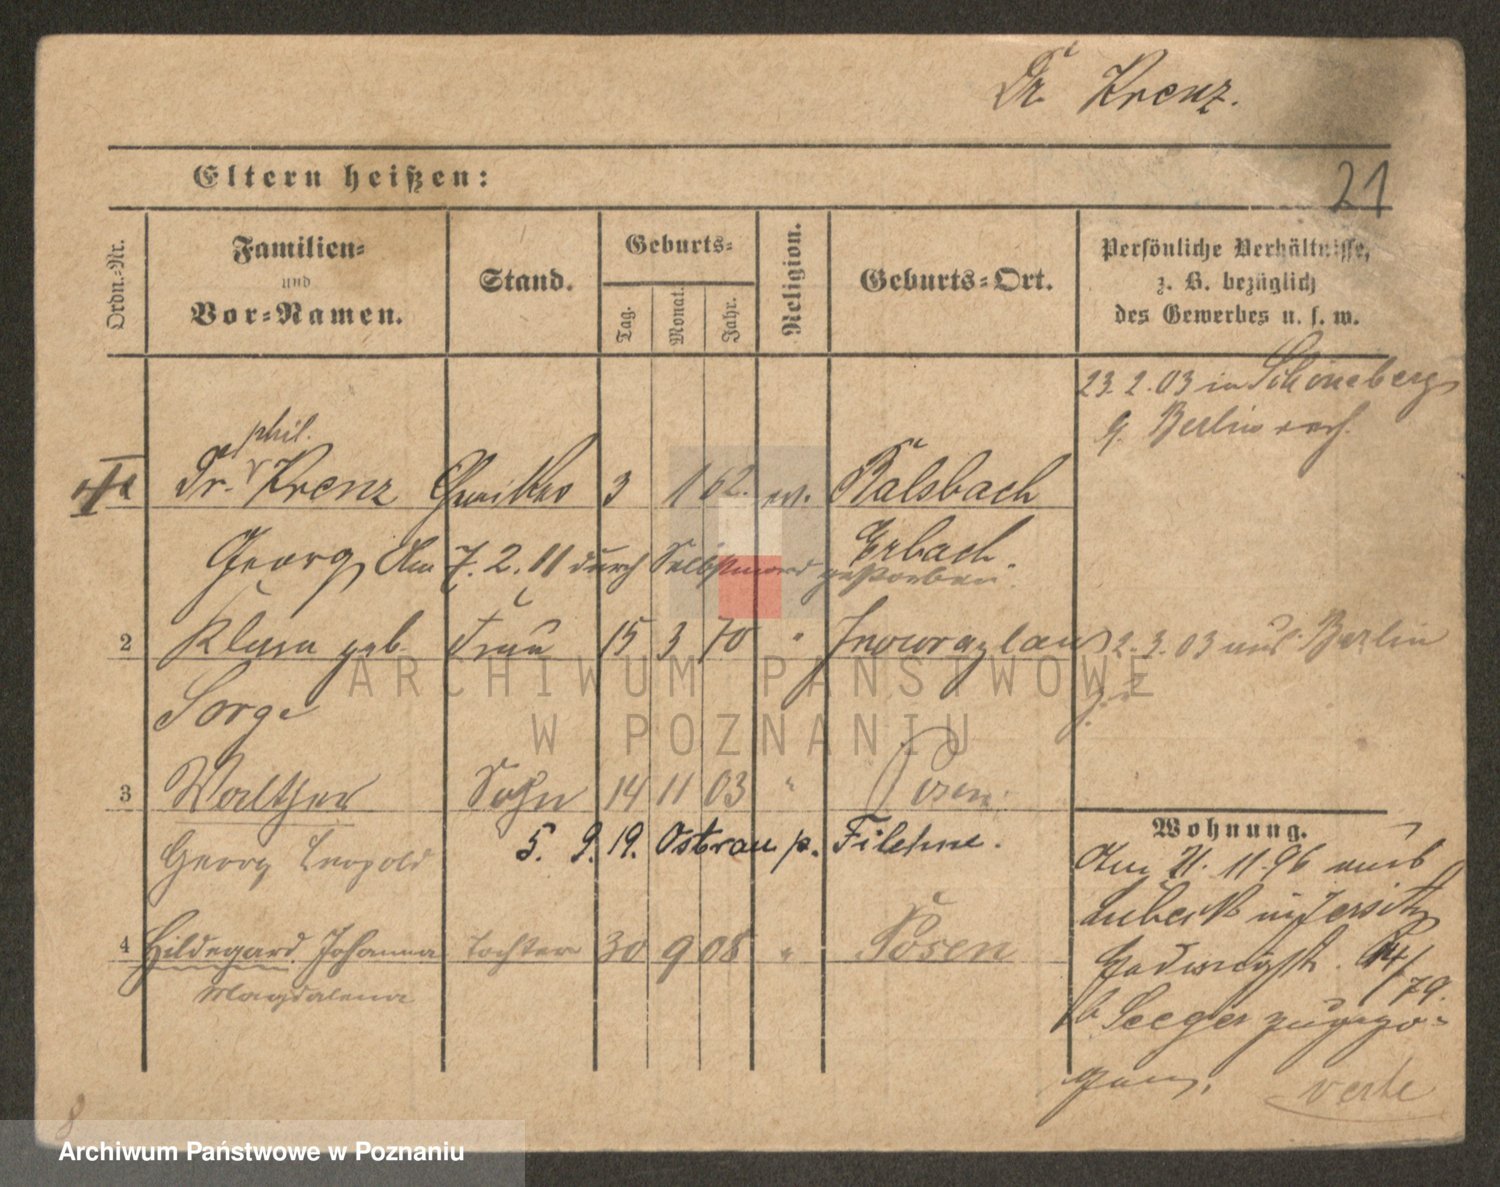 Dr. Krenz.
21
Eltern heißen:
Ordn.-Nr.
Familien-
und
Vor-Namen.
Stand.
Geburts-
Tag.
Monat.
Jahr.
Religion.
Geburts-Ort.
Persönliche Verhältnisse,
z. B. bezüglich
des Gewerbes u. s. w.
23. 2. 03 in Schöneberg
b. Berlin verh.
phil.
Dr. Krenz Chemiker 3 1 62. ev.
Georg Am 7. 2. 11 durch Selbstmord gestorben.
Erbach
2 Klara geb. Frau 15 3 70 " Inowrazlaw 2. 3. 03 aus Berlin
Sorge
3 Walther Sohn 14 11 03 " Posen
Georg Leopold
5. 9. 19. Ostrau p. Filehne.
4 Hildegard Johanna Tochter 30 9 08 " Posen
Magdalena
Wohnung.
Am 11. 96 aus
Lübeck in Jersitz
Hedwigstr. 14/
79.
b Seeger zugezo-
gen.
verte
8
ARCHIWUM PAŃSTWOWE
W POZNANIU
Archiwum Państwowe w Poznaniu